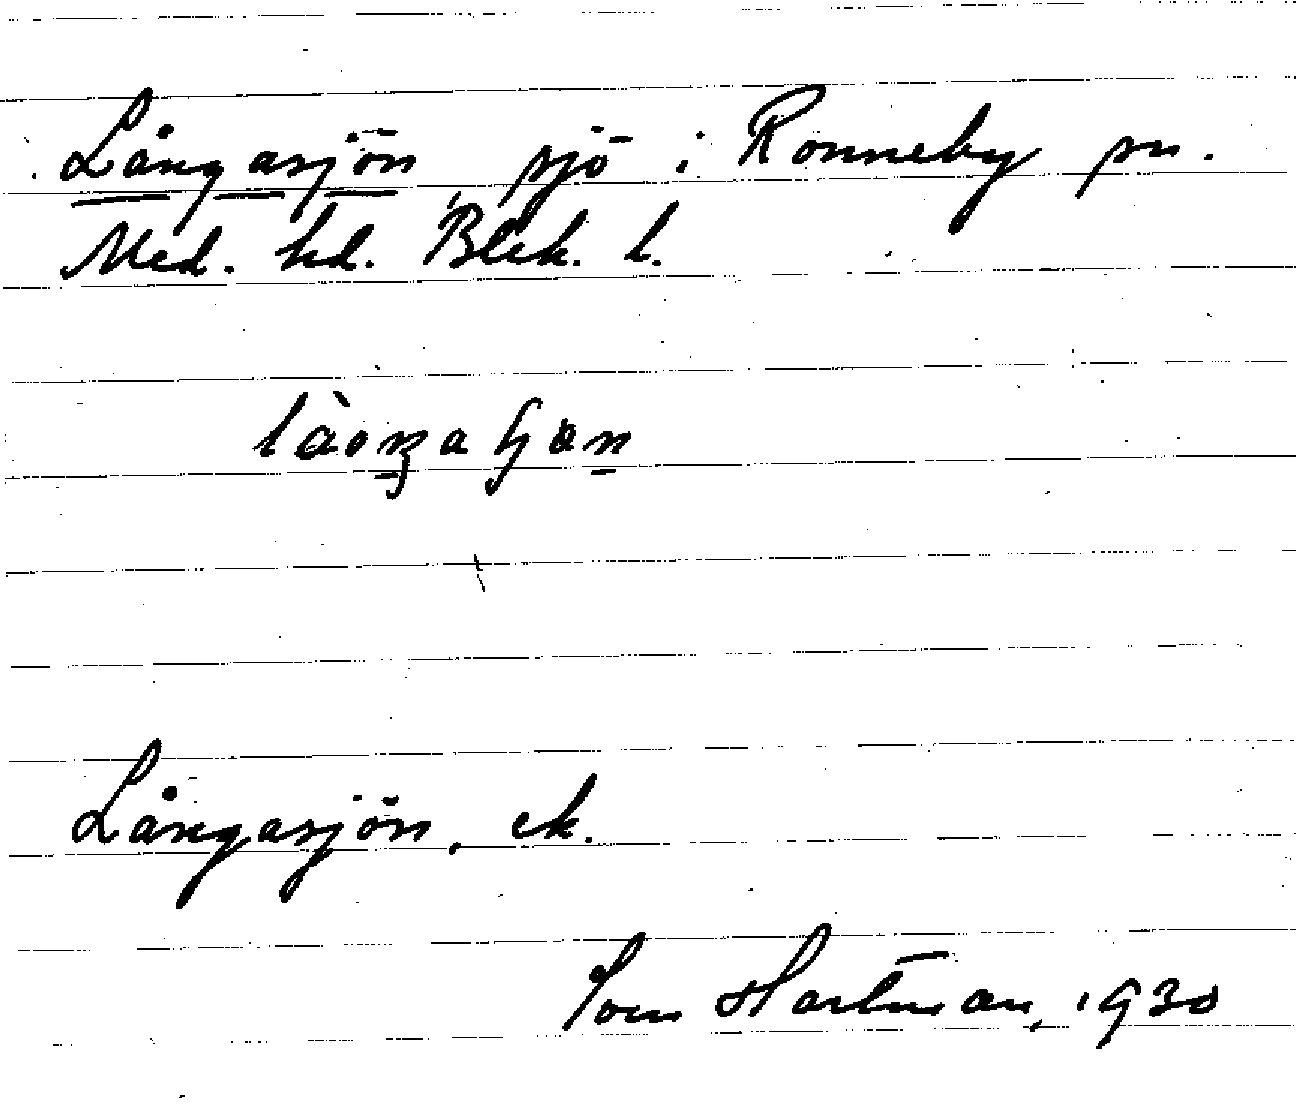 Långasjön sjö i Ronneby sn.
Med. hd. Blek. l.
Långasjön, ek.
Hartman, 1930